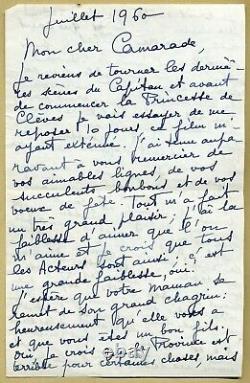 Juillet 1960
Mon cher Camarade,
Je reviens de tourner les derniè-
res scènes du Capitan et avant
de commencer la Princesse de
Clèves je vais essayer de me
reposer 10 jours ce film m'-
ayant exténué. J'ai tenu aupa-
ravant à vous remercier de
vos aimables lignes, de vos
succulents bonbons et de vos
voeux de fête. Tout m'a fait
un très grand plaisir; j'ai la
faiblesse d'aimer que l'on
m'aime et je crois que tous
les Acteurs sont ainsi; C'est
une grande faiblesse, oui.
J'espère que votre Maman se
remet de son grand chagrin;
heureusement qu'elle vous a
et que vous êtes un bon fils.
Oui, je crois que la Province est
terrible pour certaines choses, mais